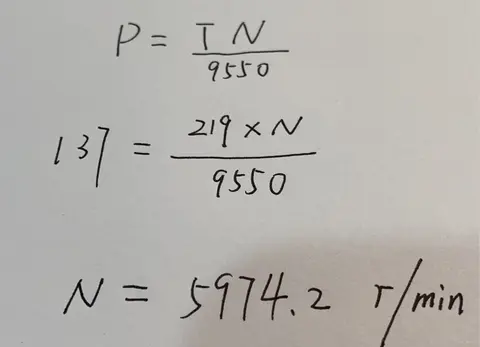 P = TN/9550
137 = 219 × N/9550
N = 5974.2 r/min